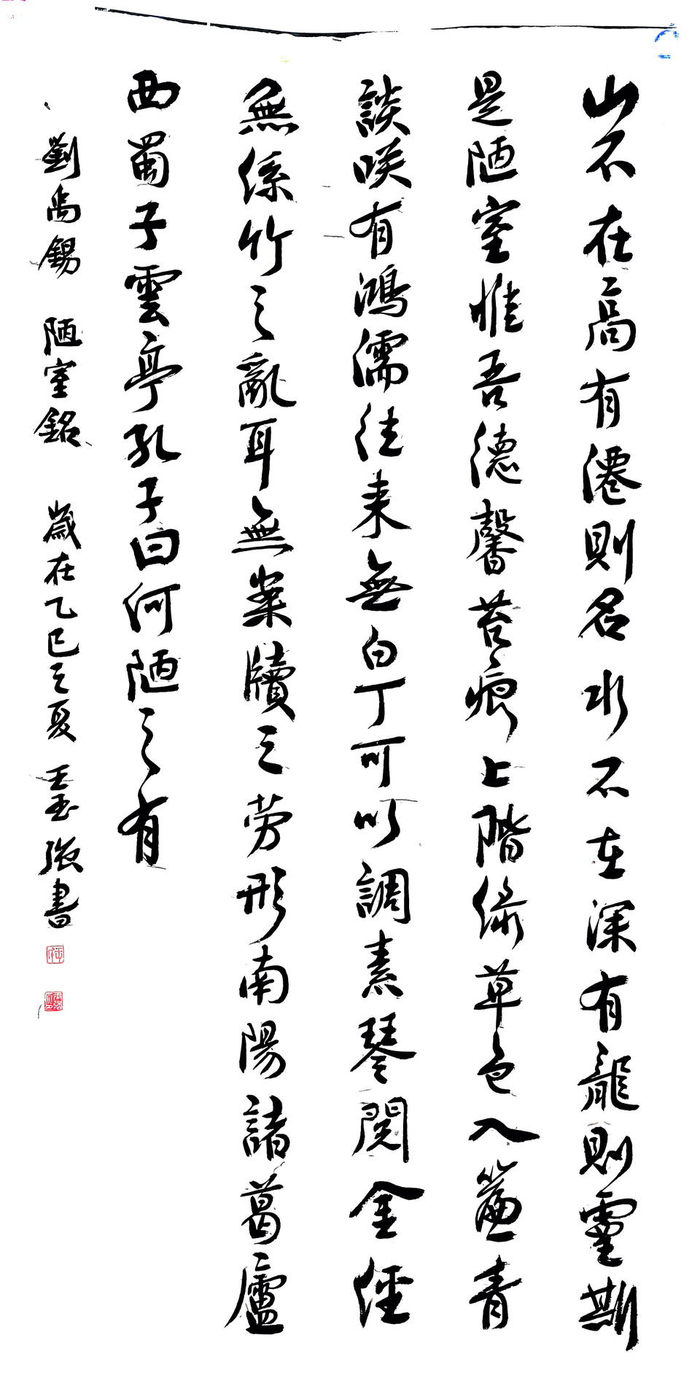 山不在高有僊則名水不在深有龍則靈斯
是陋室惟吾德馨苔痕上階綠草色入簾青
談咲有鴻儒往来無白丁可以調素琴閱金經
無絲竹之亂耳無案牘之劳形南陽諸葛廬
西蜀子雲亭孔子曰何陋之有
劉禹錫 陋室銘 歲在乙巳之夏 王玉强書